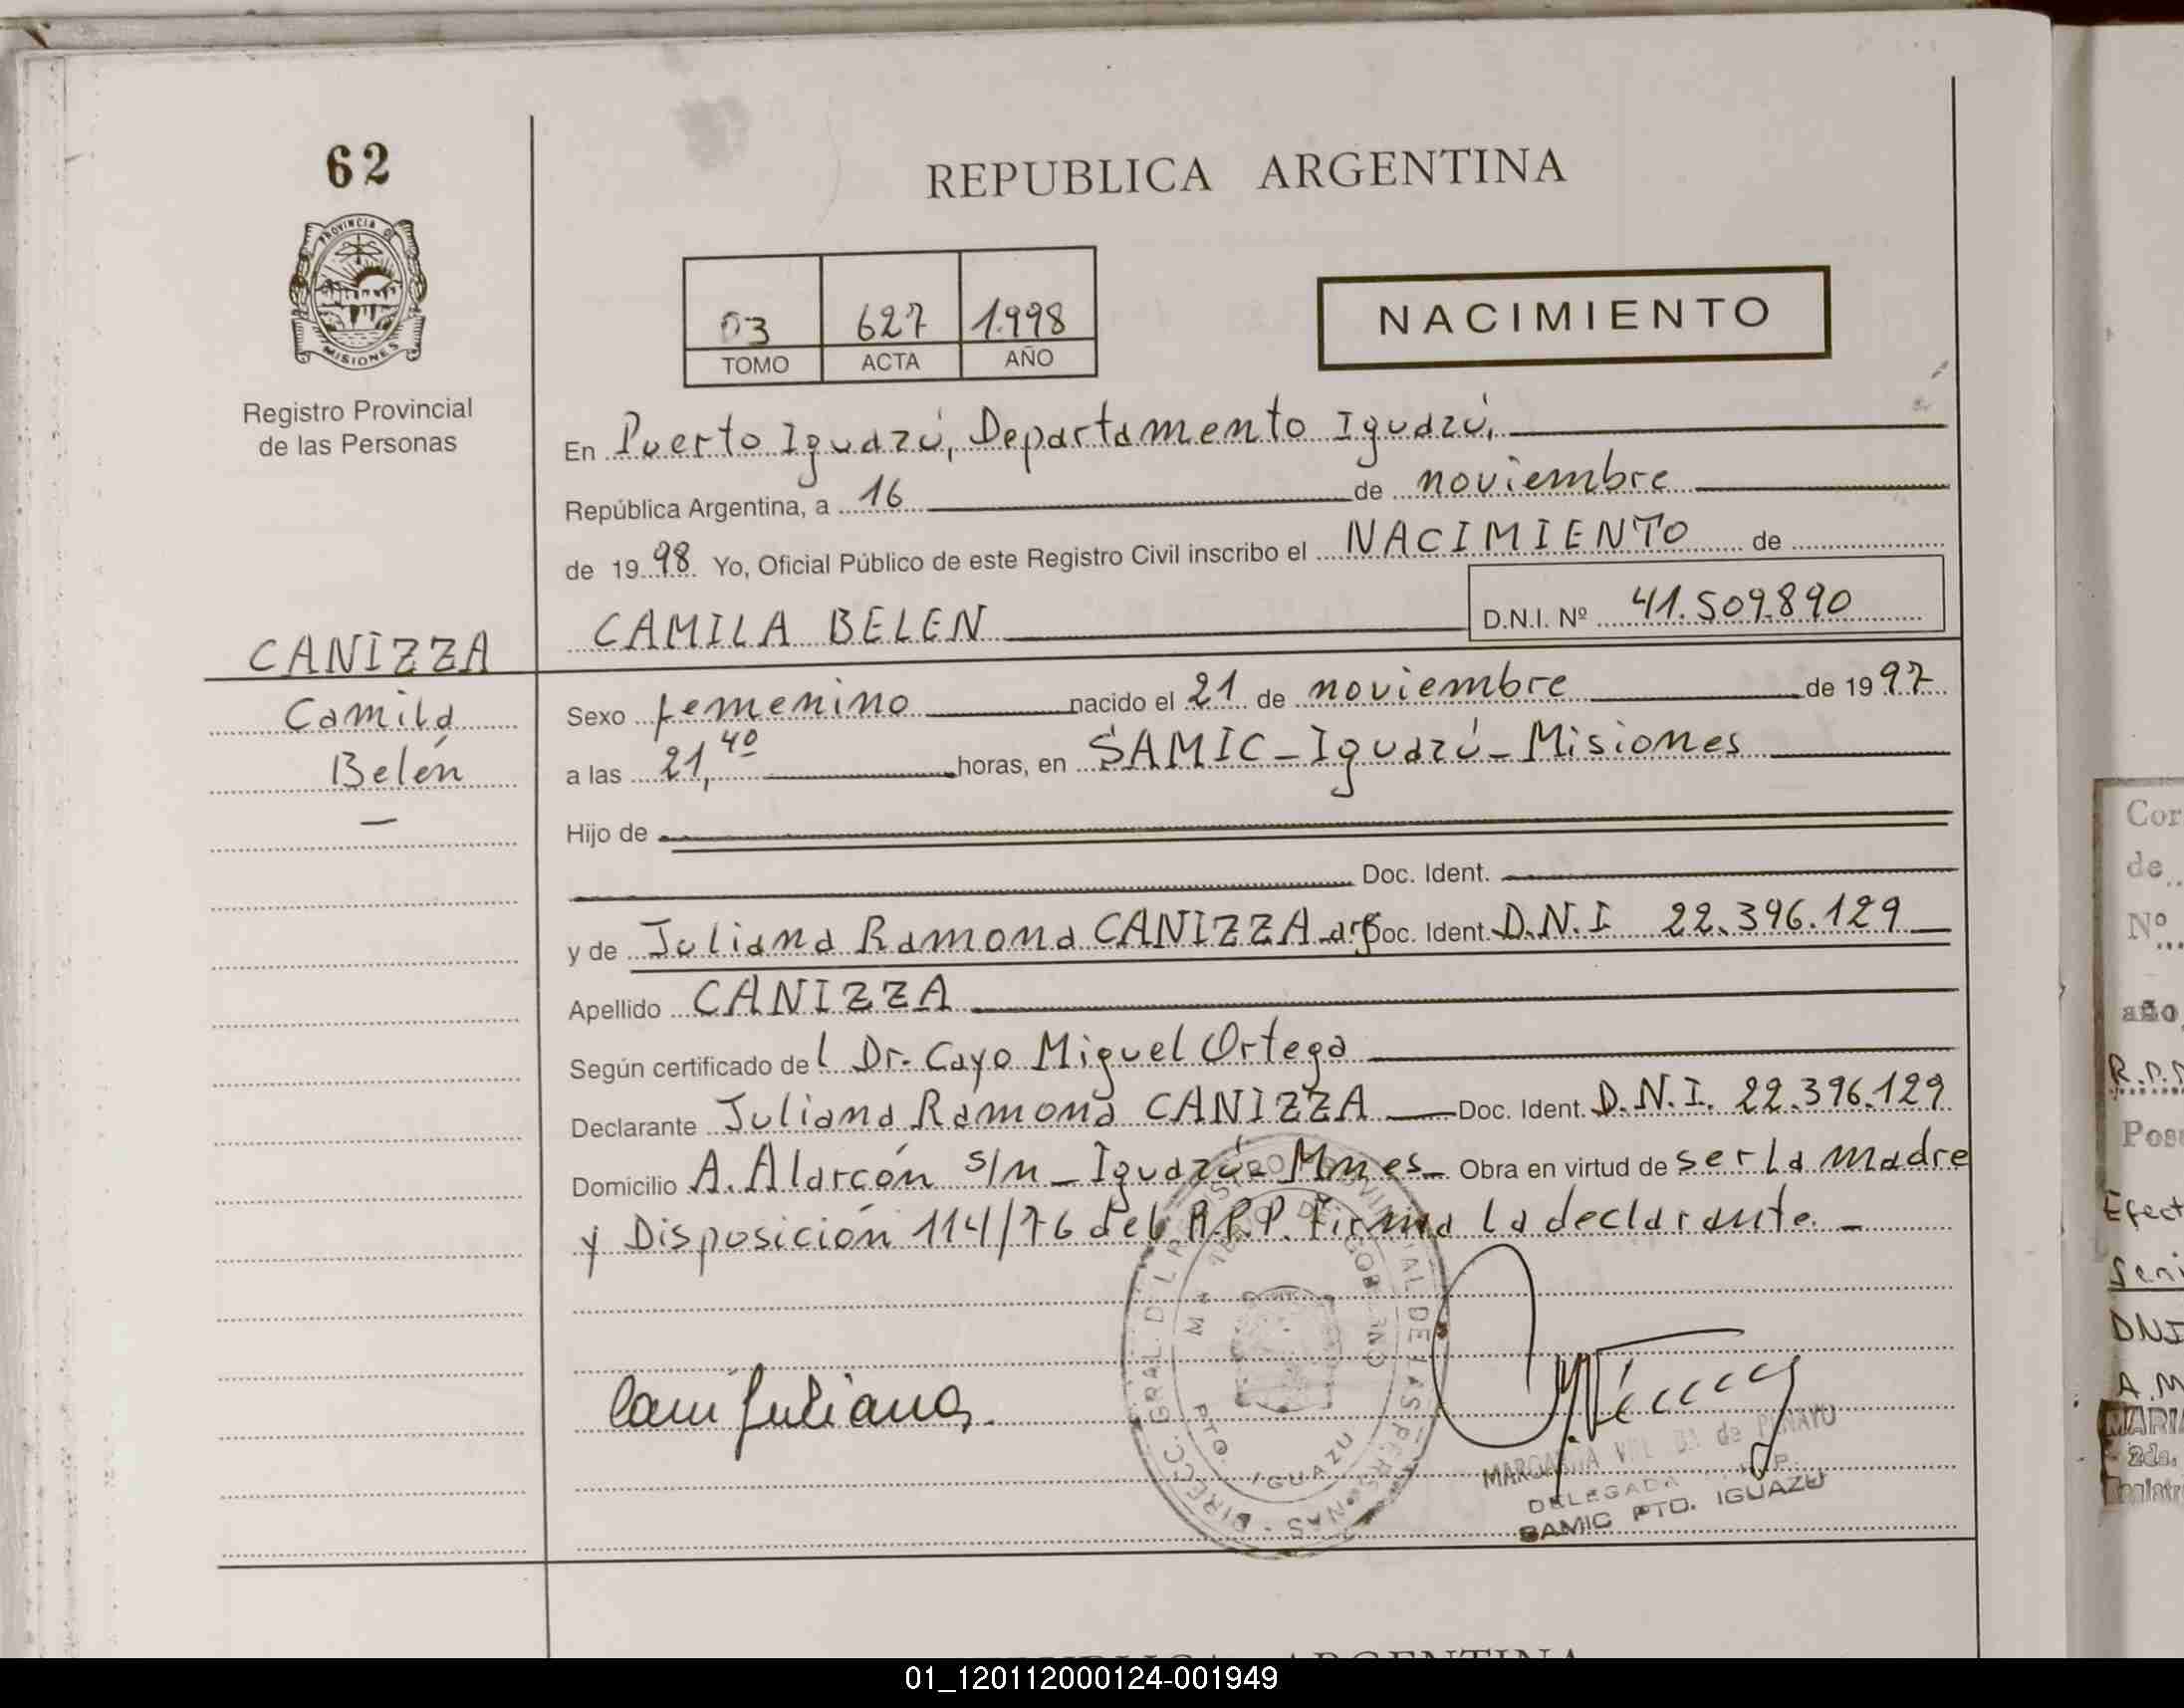 62
REPUBLICA ARGENTINA
PROVINCIA DE
MISIONES
Registro Provincial
de las Personas
03 627 1.998
TOMO ACTA AÑO
NACIMIENTO
En Puerto Iguazú, Departamento Iguazú,
República Argentina, a 16 de noviembre
de 1998 Yo, Oficial Público de este Registro Civil inscribo el NACIMIENTO de
CAMILA BELEN D.N.I. Nº 41.509.890
CANIZZA
Camila
Belén
Sexo femenino nacido el 21 de noviembre de 1997
a las 21,40 horas, en SAMIC - Iguazú - Misiones
Hijo de
Doc. Ident.
y de Juliana Ramona CANIZZA arg Doc. Ident. D.N.I 22.396.129
Apellido CANIZZA
Según certificado del Dr. Cayo Miguel Ortega
Declarante Juliana Ramona CANIZZA Doc. Ident. D.N.I. 22.396.129
Domicilio A. Alarcón s/n - Iguazú - Mnes - Obra en virtud de ser la madre
y Disposición 114/76 del R.P.P. Firma la declarante. -
DIRECC. GRAL. DEL REGISTRO PROVINCIAL DE LAS PERSONAS
PTO. IGUAZU
Juliana
MARGARITA de PENAYO
DELEGADA
SAMIC PTO. IGUAZU
Cor
de
Nº
año
R.P.P
Pos
Efect
Seri
DNI
A.M
MARI
2da.
REPUBLICA ARGENTINA
01_120112000124-001949